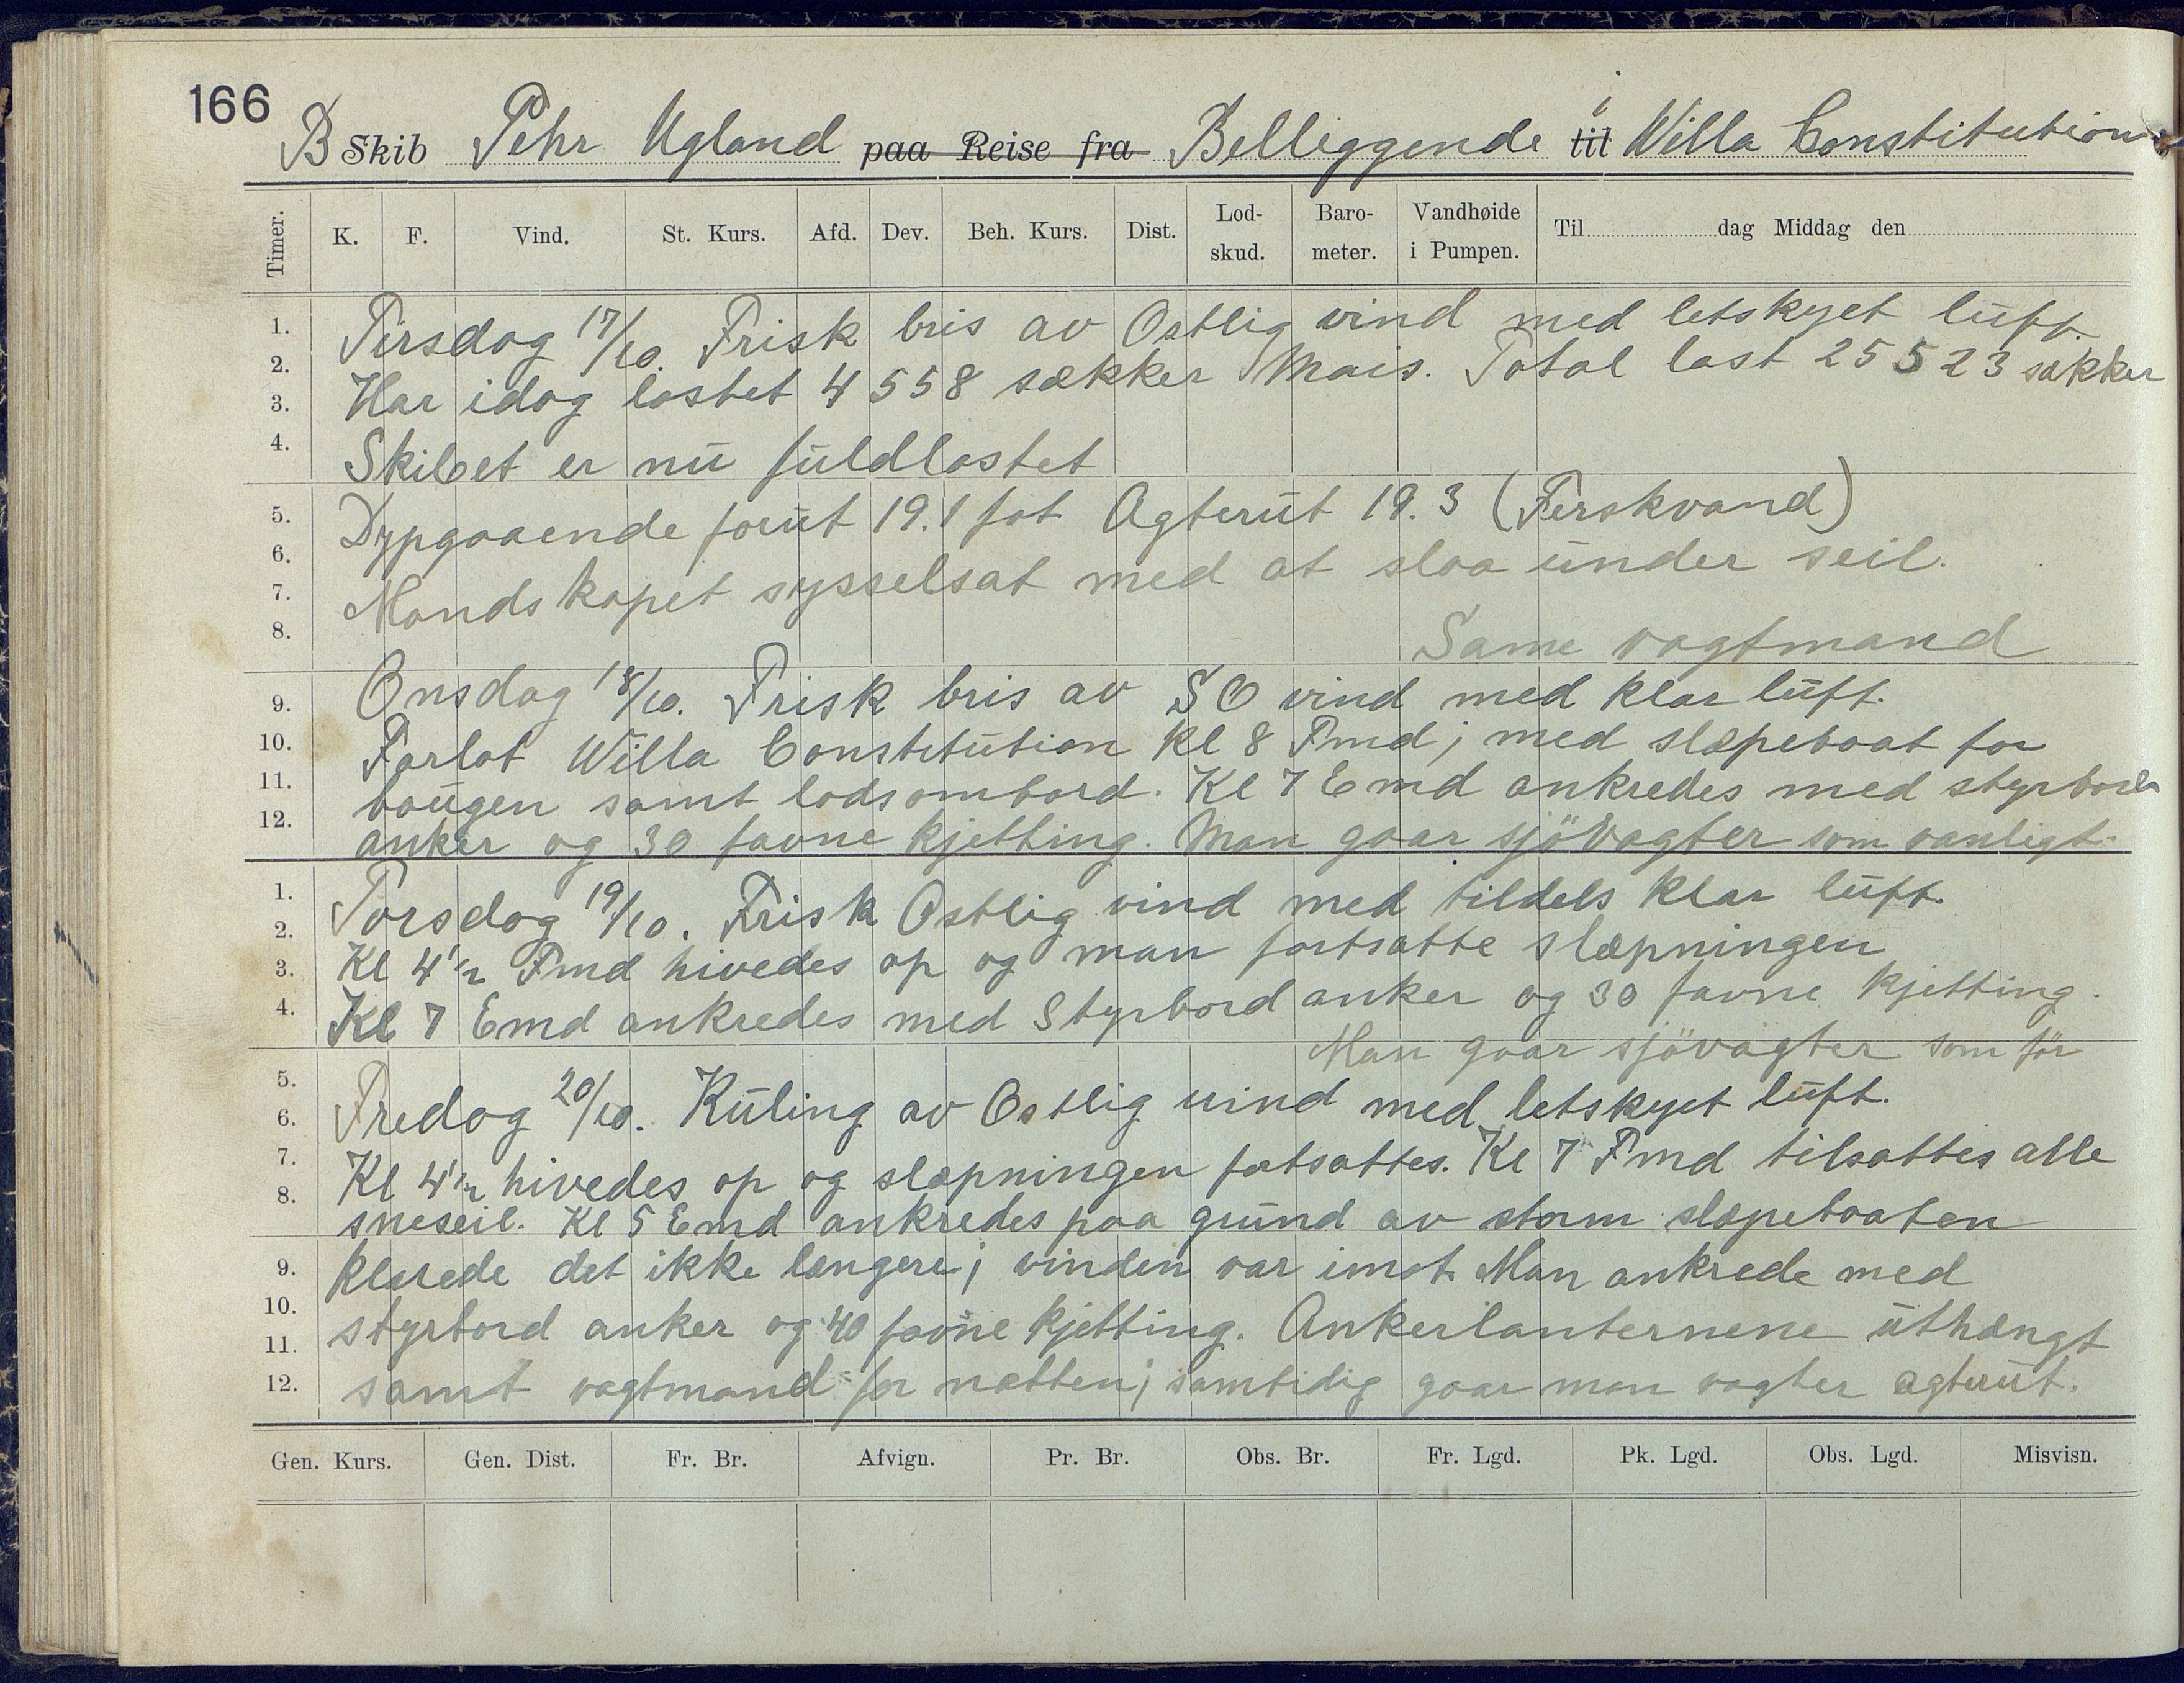 166
B Skib Pehr Ugland paa Reise fra Belliggende til i Willa Constitution
Timer. K. F. Vind. St. Kurs. Afd. Dev. Beh. Kurs. Dist. Lod-skud. Baro-meter. Vandhøide i Pumpen. Til dag Middag den
1. Tirsdag 17/10. Frisk bris av Ostlig vind med letskyet luft.
2.
3. Har idag lastet 4558 sækker Mais. Total last 25523 sækker
4. Skibet er nu fuldlastet
5. Dypgaaende forut 19.1 fot Agterut 19.3 (Ferskvand)
6.
7. Mandskapet sysselsat med at slaa under seil.
8. Same vagtmand
9. Onsdag 18/10. Frisk bris av SO vind med klar luft.
10. Forlot Willa Constitution Kl 8 Fmd; med slæpebaat for
11. bougen samt lods ombord. Kl 7 Emd ankredes med styrbords
12. anker og 30 favne kjetting. Man gaar sjövagter som vanligt.
1. Torsdag 19/10. Frisk Ostlig vind med tildels klar luft.
2.
3. Kl 4 1/2 Fmd hivedes op og man fortsatte slæpningen
4. Kl 7 Emd ankredes med Styrbord anker og 30 favne kjetting.
Man gaar sjövagter som för
5.
6. Fredag 20/10. Kuling av Ostlig vind med letskyet luft.
7. Kl 4 1/2 hivedes op og slæpningen fortsattes. Kl 7 Fmd tilsattes alle
8. sneseil. Kl 5 Emd ankredes paa grund av storm slæpebaaten
9. klarede det ikke længere; vinden var imot. Man ankrede med
10. styrbord anker og 40 favne kjetting. Ankerlanternene uthængt
11.
12. samt vagtmand for natten; samtidig gaar man vagter agterut.
Gen. Kurs. Gen. Dist. Fr. Br. Afvign. Pr. Br. Obs. Br. Fr. Lgd. Pk. Lgd. Obs. Lgd. Misvisn.